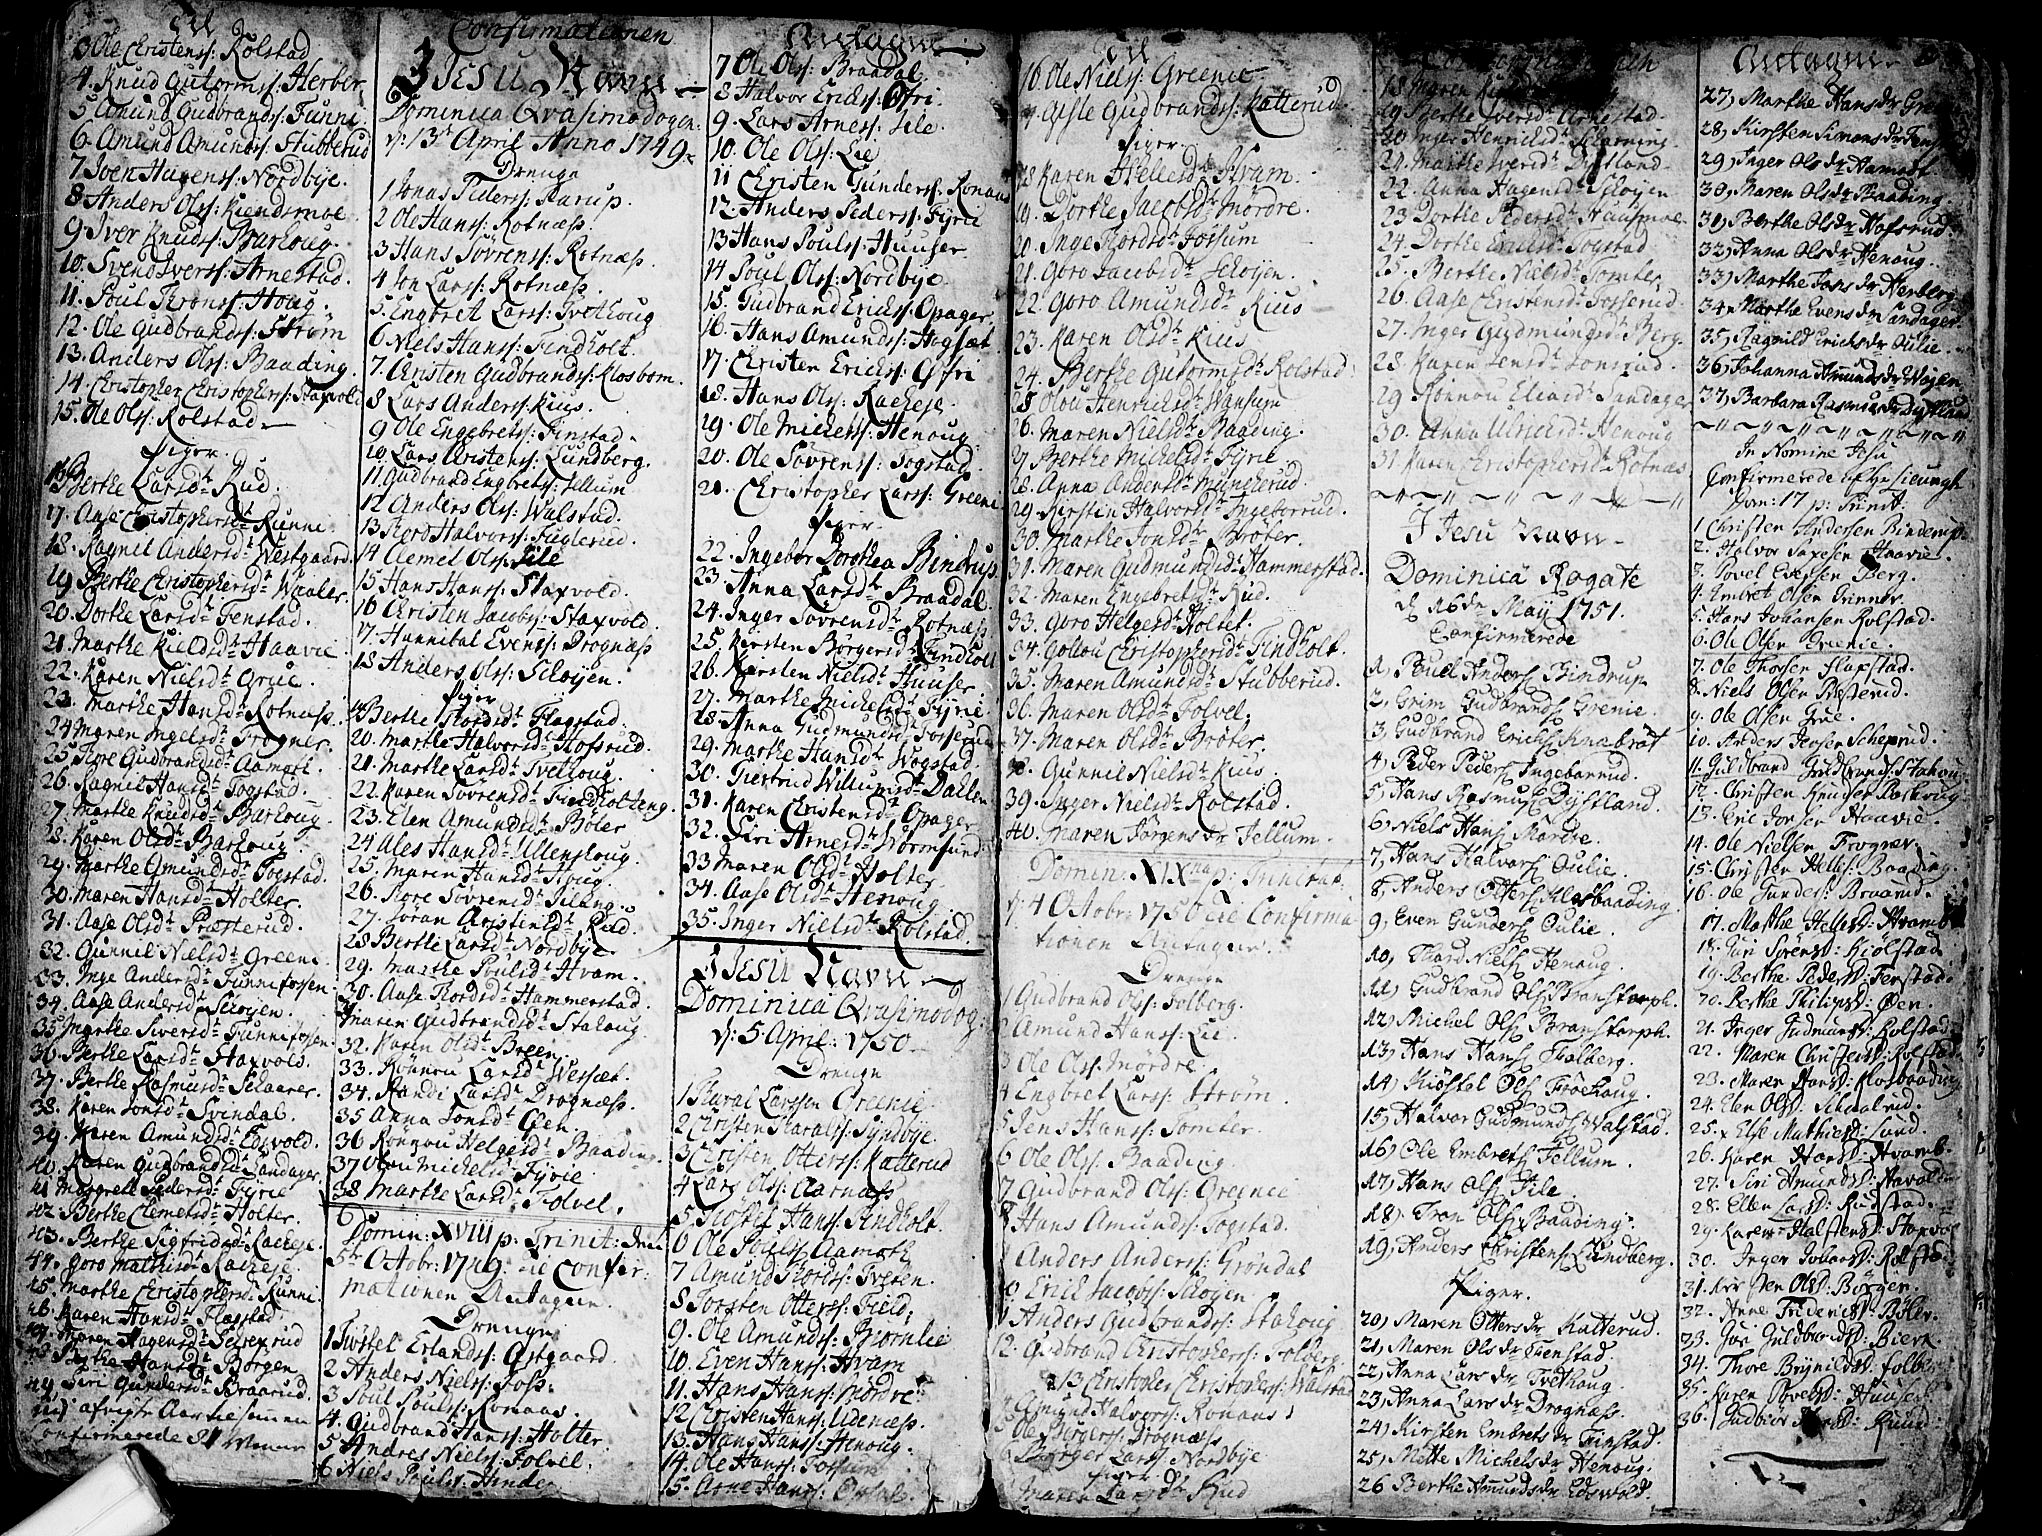 Til
3 Ole Christenss: Kolstad
4. Knud Gutormss: Herber
5 Amund Gudbrandss: Funni
6. Amund Amundss: Stubberud
7 Joen Hagenss: Nordbye.
8 Anders Olss: Kiendsmoe
9. Iver Knudss: Barhoug.
10. Svend Iverss: Arnestad.
11. Poul Thronss: Houg.
12. Ole Gudbrandss: Strøm
13. Anders Olss: Baading.
14. Christopher Christopherss: Staxvold
15. Ole Olss: Kolstad
Piger.
16 Berthe Larsdt: Rud.
17. Aase Christophersdt: Runni
18. Ragnil Andersdt: Westgaard.
19 Berthe Christophersdt: Waaler.
20. Dorthe Larsdt: Fenstad.
21. Marthe Kieldsdt: Haavie
22. Karen Nielsdt: Grue.
23. Marthe Hansdt: Rotnæss.
24 Maren Ingelsdt: Frogner.
25. Thore Gudbrandsdt: Aamott.
26. Ragnil Hansdt: Togstad.
27. Marthe Knudsdt: Barhoug.
28. Karen Olsdt: Barhoug
29. Marthe Amundsdt: Togstad.
30. Maren Hansdt: Holter.
31. Aase Olsdt: Præsterud.
32. Gunnil Nielsdt: Greeni.
33. Inge Andersdt: Funnefossen.
34. Aase Andersdt: Skøyen.
35 Marthe Siversdt: Funnefossen.
36. Berthe Larsdt: Staxvold.
37. Berthe Rasmusdt: Schaarer.
38. Karen Jonsdt: Svendal.
39. Karen Amundsdt: Edsvold.
40. Karen Gudbrandsdt: Sandager.
41 Margrete Pedersdt: Fyrie
42. Berthe Clemetsdt: Holter.
43. Berthe Sigfridsdt: Kacheje.
44. Goro Mathisdt: Kacheje.
45. Marthe Christophersdt: Runni.
46. Karen Hansdt: Flagstad
47. Maren Hagensdt:
48. Berthe Hansdt: Borgen
49. Siri Gundersdt: Braarud.
confirmerede
Confirmationen
I JESU Navn
Dominica Qvasimodogen:
d: 13t April Anno 1749.
Drenge
1 Jonas Pederss: Aarup.
2 Ole Hanss: Rotnæss.
3 Hans Sørenss: Rotnæss.
4 Jon Larss: Rotnæss.
5. Engbret Larss: Tvethoug
6 Niels Hanss: Findholt.
7. Christen Gudbrandss: Klosbom.
8 Lars Anderss: Kius.
9 Ole Engebretss: Finstad.
10 Lars Christenss: Lundberg.
11. Gudbrand Engbretss: Fellum
12 Anders Olss: Walstad.
13 Thord Halvorss: Fuglerud.
14 Clemet Olss: Sile
15 Hans Hanss: Staxvold.
16 Christen Jacobss: Staxvold.
17. Hannibal Evenss: Drognæss
18 Anders Olss: Schøyen.
Piger
19 Berthe Thordsdt: Flagstad.
20. Marthe Halvorsdt: Hofsrud.
21. Marthe Larsdt: Tvethoug.
22. Karen Sørensdt: Findholteng.
23. Elen Amundsdt: Bøler
24 Ales Hansdt: Ullenshoug.
25. Maren Hansdt: Houg.
26. Thore Sørensdt:
27. Joran Christinsdt: Rud.
28 Berthe Larsdt: Nordbye.
29. Marthe Poulsdt: Hvam.
30. Aase Thordsdt: Hammerstad.
31 Maren Gudbrandsdt: Stahoug.
32. Karen Olsdt: Breen.
33. Rønnou Larsdt: Wessæt.
34. Randi Larsdt: Drognæss.
35 Anna Jonsdt: Øen.
36 Ronnou Helgesdt: Baading.
37 Olou Michelsdt: Fyrie
38 Marthe Larsdt: Folvel.
Domin: XVIII p: Trinit: den
5te Octobr: 1749. til Confir:
mationen Antagne.
Drenge
1 Kiøstel Erlandss: Ostgaard.
2 Anders Nielss: Foss.
3 Poul Poulss: Ronaas.
4. Gudbrand Hanss: Holter.
5 Andres Nielss: Folvel.
6 Niels Poulss: Hinde
Antagne
7 Ole Olss: Braadal.
8 Halvor Erickss: Ofri.
9. Lars Arness: Sile.
10. Ole Olss: Lie
11 Christen Gunderss: Ronaas
12. Anders Pederss: Fyrie
13 Hans Poulss: Huuser
14 Poul Olss: Nordbye
15. Gudbrand Erickss: Opager.
16. Hans Amundss: Hagsæt
17. Christen Erickss: Ofri
18. Hans Olss: Kacheje.
19. Ole Michelss: Henoug.
20. Ole Sørenss: Togstad
21. Christopher Larss: Greeni
Piger
22. Ingebor Dorothea Bindrup.
23. Anna Larsdt: Braadal.
24. Inger Sørensdt: Rotnæss
25. Kersten Børgersdt: Findholt
26. Kersten Nielsdt: Huuser
27. Marthe Michelsdt: Fyrie.
28. Anna Gudmundsdt: Fosserud
29. Marthe Hansdt: Wogstad.
30. Giertrud Willumsdt: Dallen
31. Karen Christensdt: Opager
32. Siri Arnesdt: Wormsund.
33 Maren Olsdt: Holter.
34. Aase Olsdt: Henoug.
35. Inger Nielsdt: Rolstad.
I JESU Navn
Dominica Qvasimodog:
d: 5 April: 1750
Drenge
1 Haral Larssen Greenie.
2 Christen Haralss: Syndbye.
3 Christen Otterss: Katterud
4 Lars Olss: Aarnæss
5. Kiøstel Hanss: Findholt.
6 Ole Poulss: Aamoth.
7 Amund Thordss: Tveten.
8 Torsten Otterss: Field.
9. Ole Amundss: Biørnlie
10. Even Hanss: Hvam
11. Hans Hanss: Mørdre.
12 Christen Hanss: Udenæss.
13. Hans Hanss: Henoug.
14. Ole Hanss: Fossum
15. Arne Hanss:
Til
16 Ole Nielss: Greenie
17 Gisle Gudbrandss: Katterud.
Piger.
18 Karen Hellesdt: Hvam.
19. Dorthe Jacobsdt: Mørdre.
20. Inge Thordsdt: Fossum
21. Goro Jacobsdt: Schøyen.
22. Goro Amundsdt: Kius
23. Karen Olsdt: Kius
24. Berthe Gutormsdt: Rolstad.
25 Olou Henrichsdt: Wansum
26. Maren Nielsdt: Baading.
27 Berthe Michelsdt: Fyrie.
28. Anna Andersdt: Munkerud.
29. Kirstin Halvorsdt: Ingeborrud.
30. Marthe Jonsdt: Brøter.
31. Maren Gudmundsdt: Hammerstad.
32. Maren Engebretsdt: Rud.
33. Goro Helgesdt: Holtet.
34. Gollou Christophersdt: Findholt.
35. Maren Amundsdt: Stubberud.
36. Maren Olsdt: Folvel.
37. Maren Olsdt: Brøter.
38. Gunnil Nielsdt: Kius.
39. Inger Nielsdt: Rolstad.
40. Maren Jørgensdr Fellum.
Domin: XIX na p: Trinitat:
d: 4 Octobr: 1750 til Confirma
tionen Antagne.
Drenge
1 Gudbrand Olss: Folberg.
2 Amund Hanss: Lie.
3 Ole Olss: Mørdre.
4 Engbret Larss: Strøm.
5 Jens Hanss: Tomter.
6 Ole Olss: Baading.
7 Gudbrand Olss: Greenie
8 Hans Amundss: Togstad.
9 Anders Anderss: Grøndal
10 Erick Jacobss: Schøyen
11 Anders Gudbrandss: Stahoug
12. Gudbrand Christopherss: Folberg.
13 Christopher Christopherss: Walstad
14 Amund Halvorss: Ronaas
15 Ole Børgerss: Drognæss
16 Børger Larss: Nordbye
Piger
Maren Larsdt: Rud
18 Maren
19 Berthe Iversdt: Arnestad.
20 Inger Henrichsdt:
21. Marthe Iversdt: Dystland.
22. Anna Hagensdt: Schøyen
23 Dorthe Pedersdt: Hausmoe
24. Dorthe Erichsdt: Togstad
25. Berthe Nielsdt: Tomter
26. Aase Christensdt: Fosserud.
27. Inger Gudmundsdt: Berg.
28. Karen Jensdt: Jonsrud.
29 Rønnou Eliædt: Sandager
30. Anna Ulrichsdt: Henoug
31. Karen Christophersdt: Rotnæs
I Jesu Navn.
Dominica Rogate
d 16de Maij 1751.
Confirmerede
1, Poul Anderss Bindrup
2, Grim Gudbrandss Grenie.
3, Gudbrand Ericks Knabrøt
4, Peder Peders Ingebarrud.
5, Hans Rasmuss Dystland.
6, Niels Hans Mordre.
7, Hans Halvars Oulie.
8, Anders Otters Klosbaading.
9, Even Gunders Oulie.
10, Thord Niels Henoug.
11, Gudbrand Ols Branstorph.
12, Michel Ols Branstorph.
13, Hans Hans Tholberg.
14, Kiøstel Ols Froehaug.
15, Halvor Gudmunds Walstad.
16, Ole Embrets Fellum.
17, Hans Ols Sile.
18, Tron Ols Baading.
19, Anders Christens Lundberg.
Piger.
20, Maren Ottersdr Katterud.
21, Maren Olsdr Fienstad.
22, Anna Larsdr Tvethoug.
23, Anna Larsdr Drognæss.
24, Kirsten Embretsdr Finstad.
25, Mette Michelsdr Henoug.
26 Berthe Amundsdr Edsvold.
Antagne
27, Marthe Hansdr
28, Kirsten Simonsdr
29, Inger Olsdr Aamodt.
30, Maren Olsdr Baading.
31, Berthe Olsdr Hofsrud
32, Anna Olsdr Henoug.
33, Marthe Jonsdr Herberg
34, Marthe Evensdr Sandager.
35, Ragnild Erichsdr Oulie
36, Johanna Amundsdr Wojen
37, Barbara Rasmusdr Dystland
In Nomine Jesu
Confirmerede efter
Dom: 17 p: Trinit:
1 Christen Andersen Bindrup
2. Halvor Saxesen Haavie.
3. Povel Evensen Berg.
4. Embret Olsen Grinner.
5. Hans Johansen Rolstad.
6. Ole Olsen Grenie.
7. Ole Thorsen Flagstad.
8. Niels Olsen Præsterud.
9. Ole Olsen Grue.
10. Anders Jensen Scheprud.
11. Guldbrand Guldbrands: Stahou
12. Christen Knudsen Barhoug.
13. Eric Torsen Haavie.
14. Ole Nielsen Frogner.
15. Christen Hellss: Baading
16. Ole Gunders: Braarud.
17. Marthe Helgesd: Hvamb
18. Guri Sørensd: Kiølstad
19. Berthe Pedersd: Fenstad.
20. Berthe Philipsd: Øen.
21. Inger Gudmundsd: Rolstad.
22. Maren Christensd: Rolstad.
23. Maren Hansd: Klosbaading
24. Elen Olsd: Schaalrud.
25. Else Mathiesd: Sand.
26. Karen Hansd: Hvamb.
27. Siri Amundsd:
28. Ellen Larsd: Rudstad.
29. Karen Halstensd: Staxvol
30. Inger Johansd: Rolstad.
31. Kirsten Olsd: Borgen.
32. Anne Fridericsd: Bøler.
33. Guldbrandsd: Bierk
34. Thore Brynildsd: Folberg
35. Karen Povelsd: Huuser
36. Gudbior